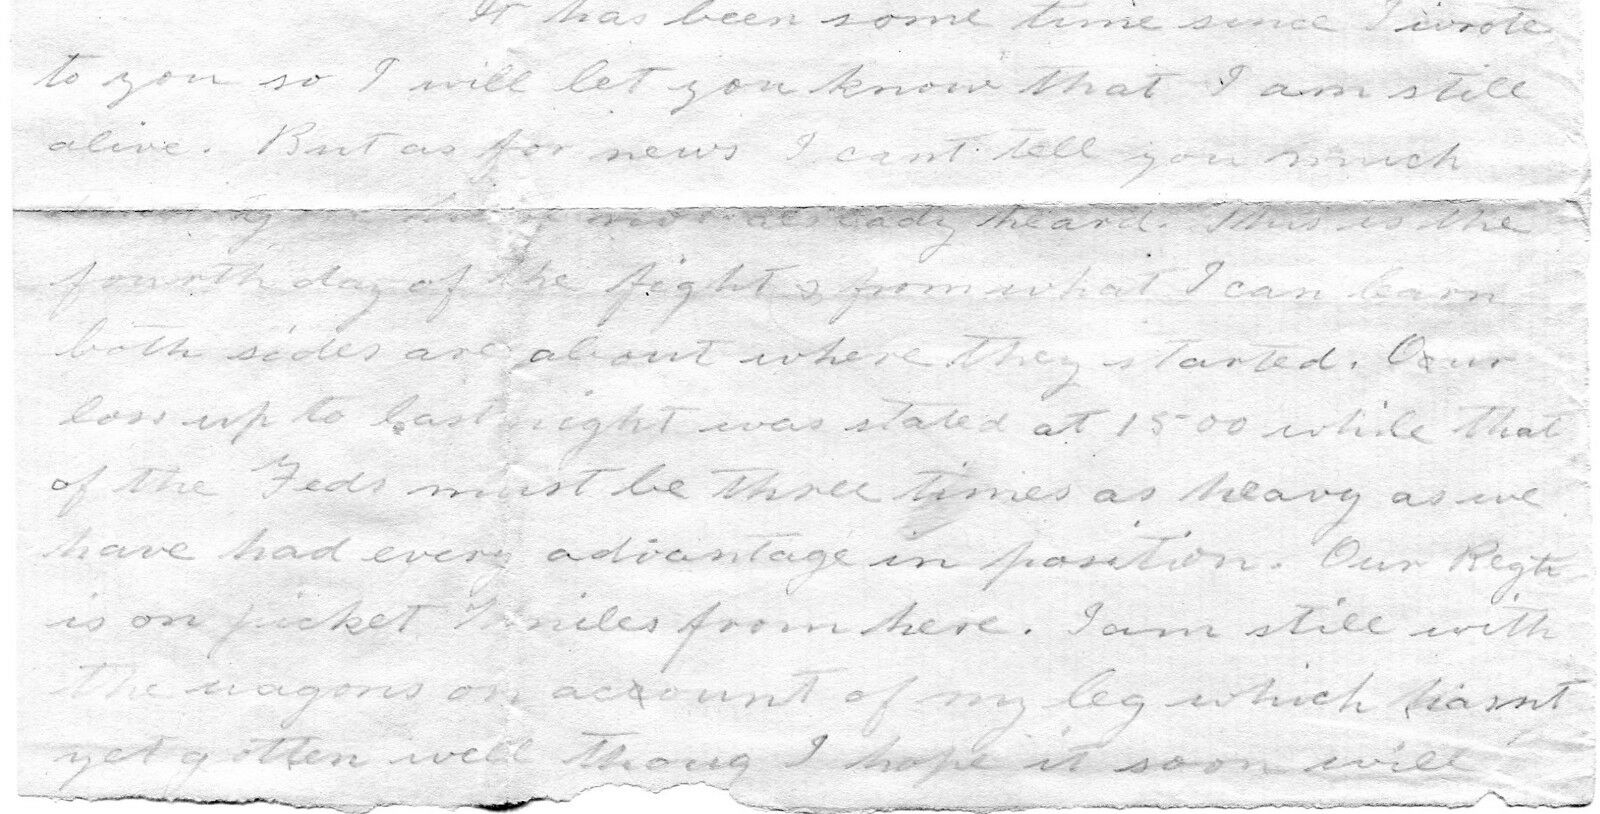 It has been some time since I wrote
to you so I will let you know that I am still
alive. But as for news I cant tell you much
not already heard. This is the
fourth day of the fight & from what I can learn
both sides are about where they started. Our
loss up to last night was stated at 1500 while that
of the Feds must be three times as heavy as we
have had every advantage in position. Our Regt
is on picket miles from here. I am still with
the wagons on account of my leg which hasnt
yet gotten well thoug I hope it soon will